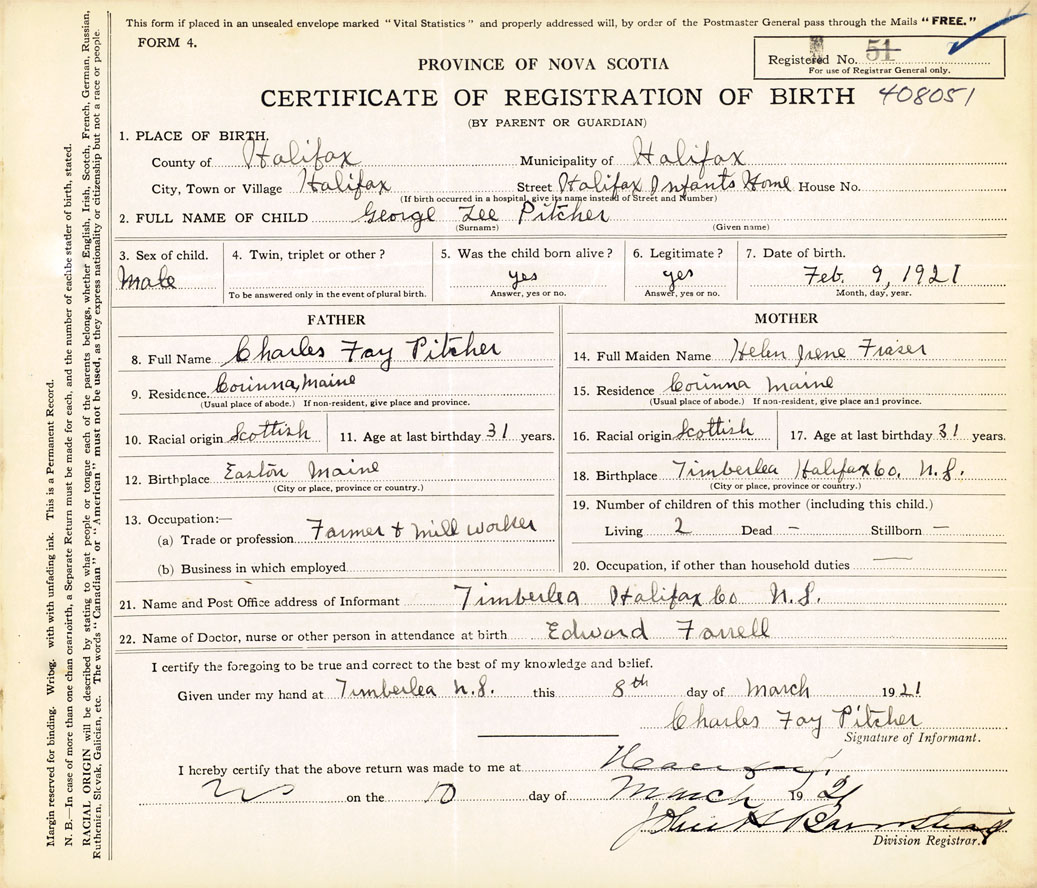 This form if placed in an unsealed envelope marked "Vital Statistics" and properly addressed will, by order of the Postmaster General pass through the Mails "FREE."
FORM 4.
Registered No. 51
For use of Registrar General only.
PROVINCE OF NOVA SCOTIA
CERTIFICATE OF REGISTRATION OF BIRTH 408051
(BY PARENT OR GUARDIAN)
1. PLACE OF BIRTH.
County of Halifax Municipality of Halifax
City, Town or Village Halifax Street Halifax Infants Home House No.
(If birth occurred in a hospital, give its name instead of Street and Number)
2. FULL NAME OF CHILD George Lee Pitcher
(Surname) (Given name)
3. Sex of child. 4. Twin, triplet or other? 5. Was the child born alive? 6. Legitimate? 7. Date of birth.
Male yes yes Feb. 9, 1921
To be answered only in the event of plural birth. Answer, yes or no. Answer, yes or no. Month, day, year.
FATHER
8. Full Name Charles Fay Pitcher
9. Residence. Corinna, Maine
(Usual place of abode.) If non-resident, give place and province.
10. Racial origin Scottish 11. Age at last birthday 31 years.
12. Birthplace Easton Maine
(City or place, province or country.)
13. Occupation:—
(a) Trade or profession Farmer + mill worker
(b) Business in which employed
MOTHER
14. Full Maiden Name Helen Irene Fraser
15. Residence Corinna Maine
(Usual place of abode.) If non-resident, give place and province.
16. Racial origin Scottish 17. Age at last birthday 31 years.
18. Birthplace Timberlea Halifax Co. N.S.
(City or place, province or country.)
19. Number of children of this mother (including this child.)
Living 2 Dead – Stillborn —
20. Occupation, if other than household duties —
21. Name and Post Office address of Informant Timberlea Halifax Co N.S.
22. Name of Doctor, nurse or other person in attendance at birth Edward Farrell
I certify the foregoing to be true and correct to the best of my knowledge and belief.
Given under my hand at Timberlea N.S. this 8th day of March 1921
Charles Fay Pitcher
Signature of Informant.
I hereby certify that the above return was made to me at
on the 10 day of March 1921
Division Registrar.
Margin reserved for binding. with with unfading ink. This is a Permanent Record.
N. B.—In case of more than one a Separate Return must be made for each, and the number of each of birth, stated.
RACIAL ORIGIN will be described by stating to what people or tongue each of the parents belongs, whether English, Irish, Scotch, French, German, Russian,
Ruthenian, Slovak, Galicien, etc. The words "Canadian" or "American" must not be used, as they express nationality or citizenship but not a race or people.